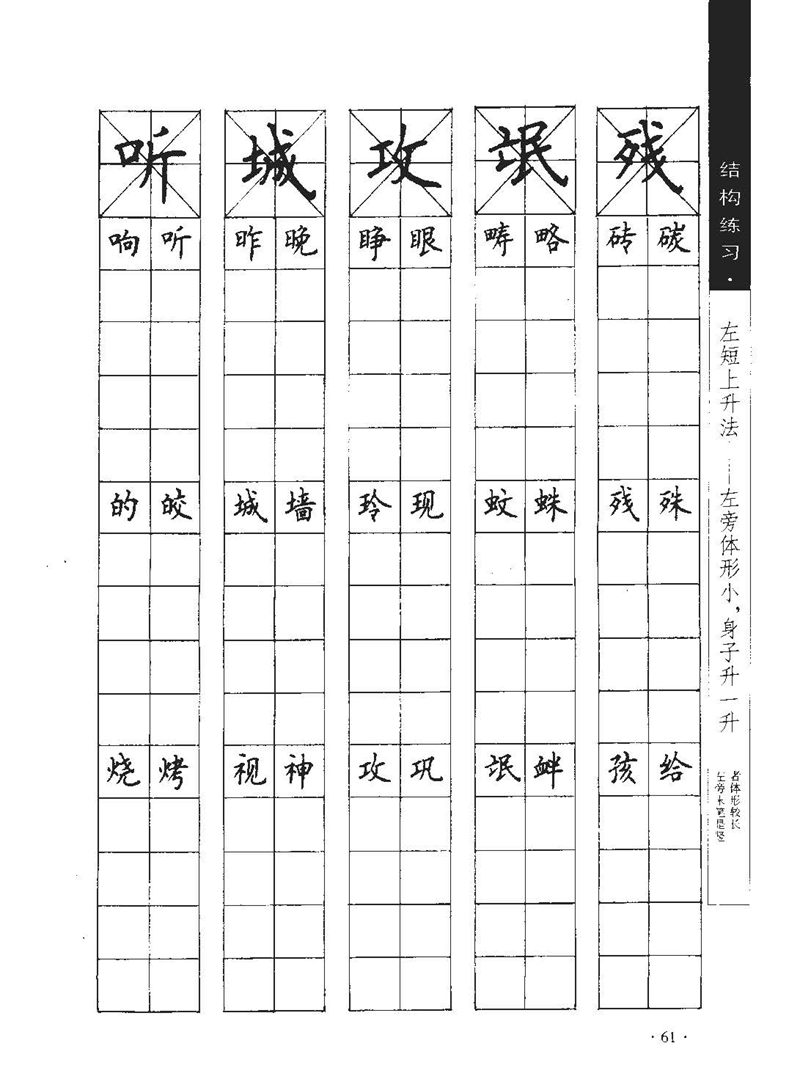 听 城 攻 氓 残
响 听 昨 晚 睁 眼 畴 略 砖 碳
的 皎 城 墙 玲 现 蚊 蛛 残 殊
烧 烤 视 神 攻 巩 氓 衅 孩 给
结构练习·
左短上升法——左旁体形小,身子升一升
左旁末笔是竖
者体形较长
·61·